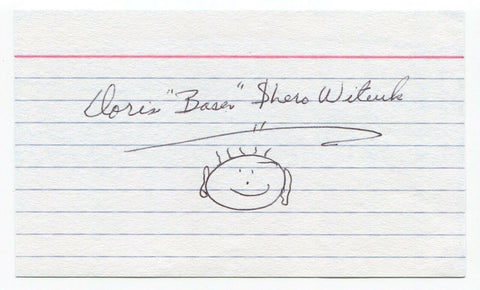 Doris "Bases" Shero Witiuk